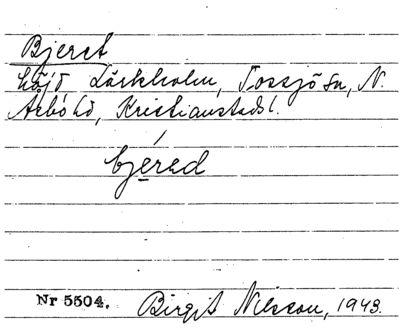 Bjeret
höjd Läckholm, Tossjö sn, N.
Åsbo hd, Kristianstads l.
bjéred
Nr 5504. Birgit Nilsson, 1943.